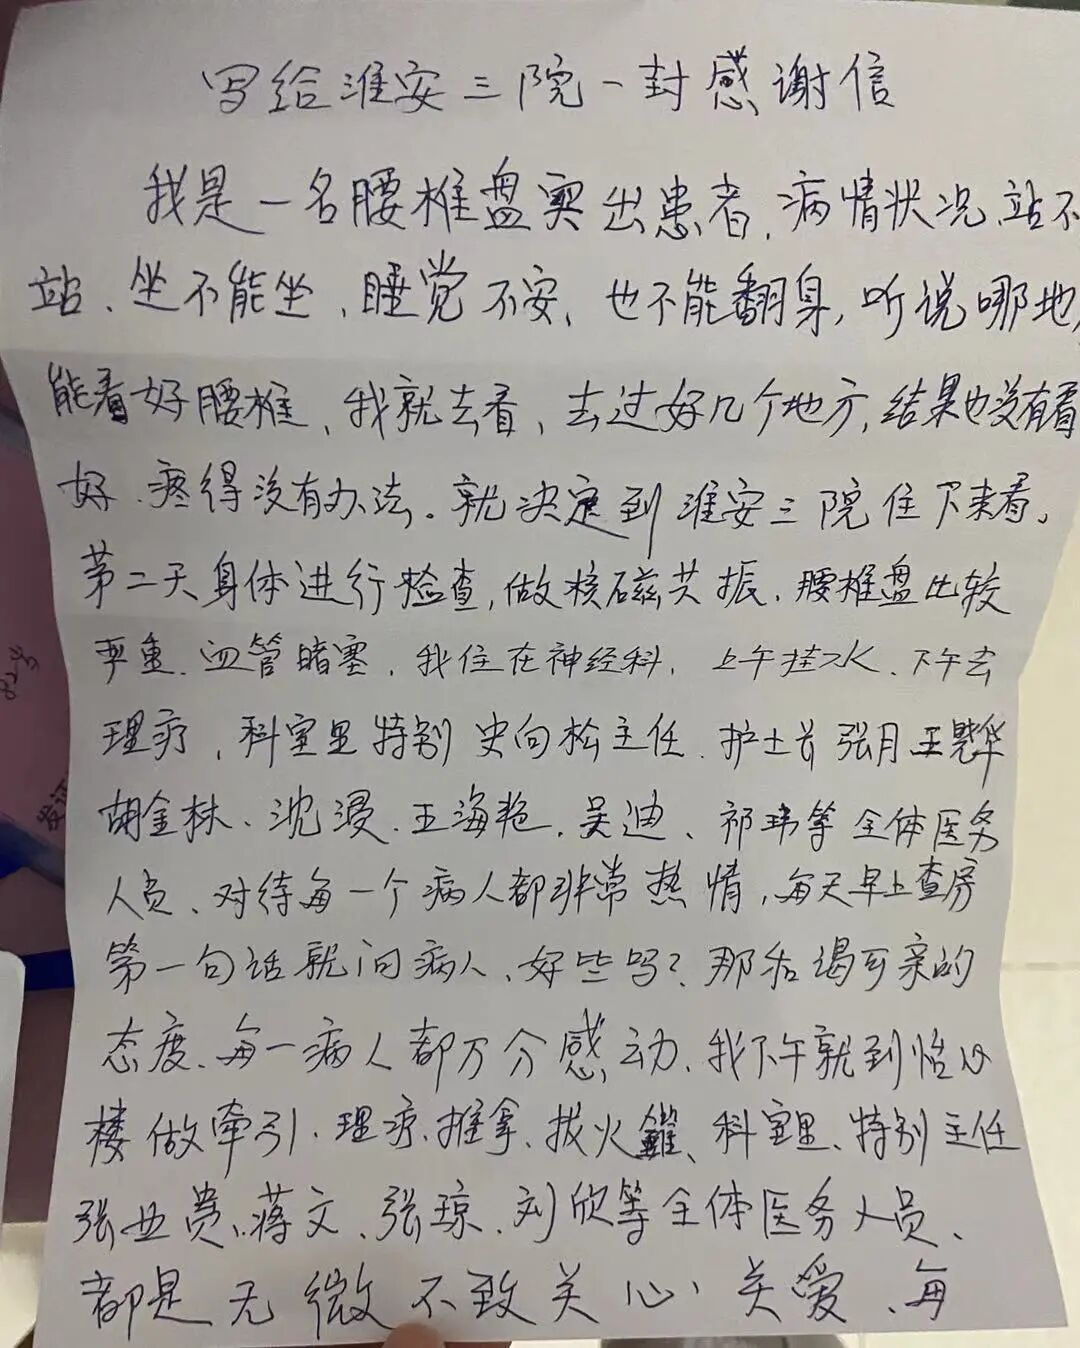 写给淮安三院一封感谢信
我是一名腰椎盘突出患者，病情状况，站不
站、坐不能坐，睡觉不安，也不能翻身，听说哪地
能看好腰椎，我就去看，去过好几个地方，结果也没有看
好、疼得没有办法。就决定到淮安三院住下来看。
第二天身体进行检查，做核磁共振，腰椎盘比较
严重、血管赌塞，我住在神经科，上午挂水、下午去
理疗，科室里特别史向松主任、护士长张月、王慧华
胡金林、沈浸、王海艳、吴迪、祁玮等全体医务
人员、对待每一个病人都非常热情，每天早上查房
第一句话就问病人、好些吗？那和谒可亲的
态度、每一病人都万分感动、我下午就到怡心
楼做牵引、理疗、推拿、拔火罐、科室里、特别主任
张业贵、蒋文、张琼、刘欣等全体医务人员、
都是无微不致关心、关爱、每